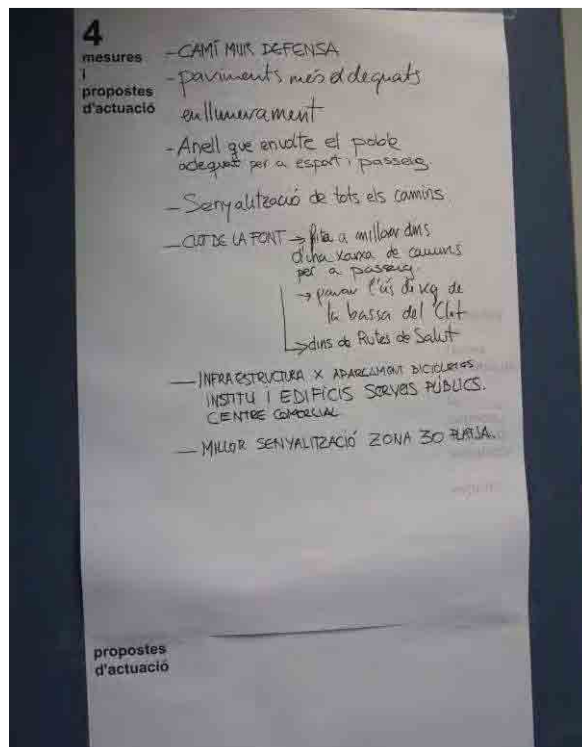 4
mesures
i
propostes
d'actuació
- CAMÍ MUR DEFENSA
- paviments més addequats
enllumenament
- Anell que envolte el poble
adequat per a esport i passeig.
- Senyalització de tots els camins
- CLOT DE LA FONT → fita a millorar dins
d'una xarxa de camins
per a passeig.
→ l'ús de
la bassa del Clot
→ dins de Rutes de Salut
- INFRAESTRUCTURA X APARCAMENT BICICLETES
INSTITU I EDIFICIS SERVEIS PÚBLICS.
CENTRE COMERCIAL
- MILLOR SENYALITZACIÓ ZONA 30 PLATJA.
propostes
d'actuació